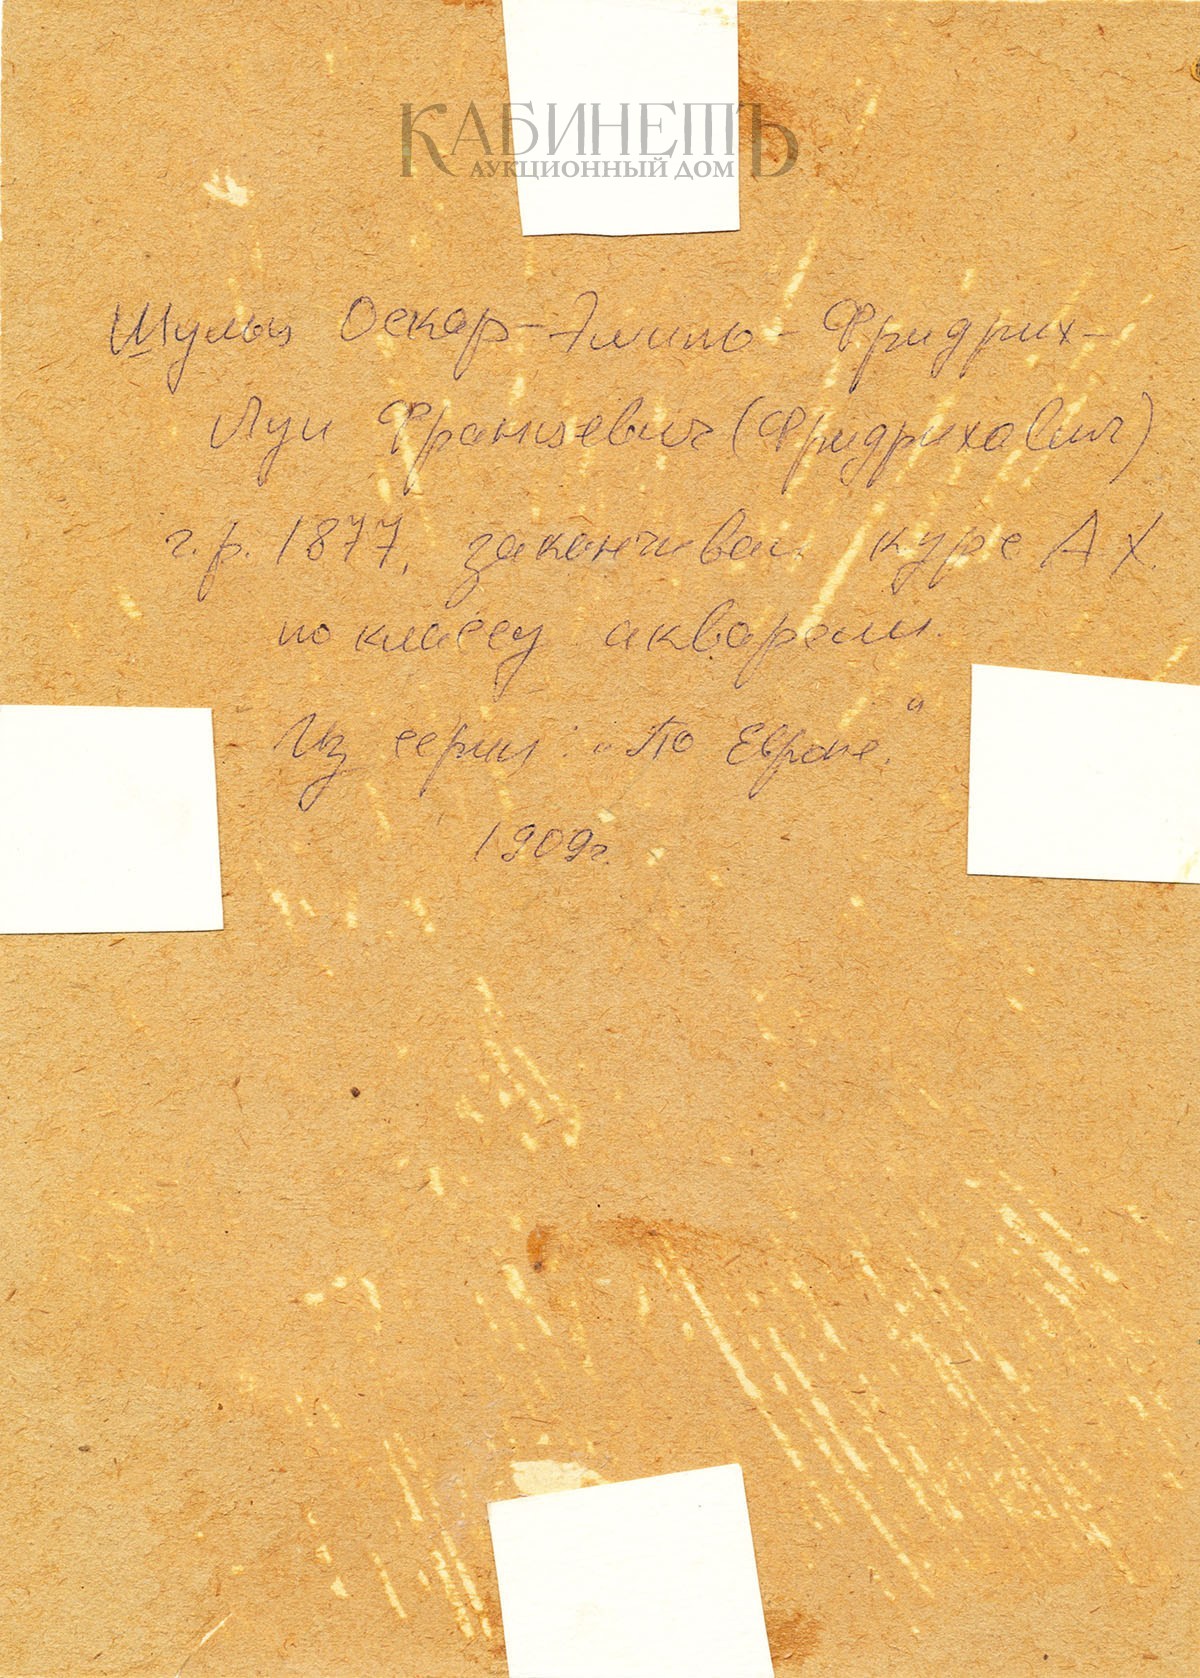 КАБИНЕТЪ
АУКЦИОННЫЙ ДОМ
Шульц Оскар-Эмиль-Фридрих-
Луи Францевич (Фридрихович)
г.р. 1877, заканчивал курс А.Х.
по классу акварели.
Из серии: "По Европе."
1909г.